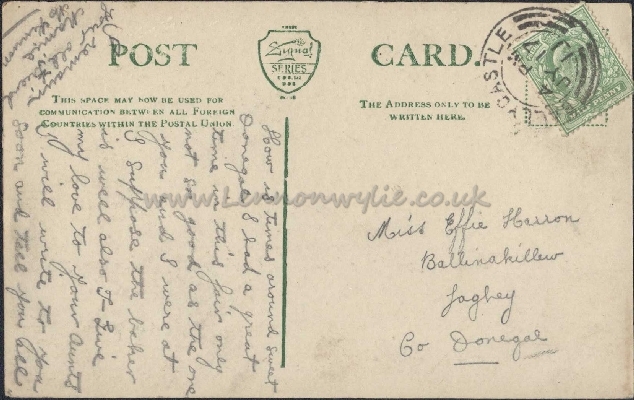 POST CARD.
Signal
SERIES
THIS SPACE MAY NOW BE USED FOR
COMMUNICATION BETWEEN ALL FOREIGN
COUNTRIES WITHIN THE POSTAL UNION.
THE ADDRESS ONLY TO BE
WRITTEN HERE.
CASTLE
JY 17
11
How is times around sweet
Donegal I had a great
time in this fair only
not so good as the one
you and I were at
I suppose the baker
is well also & Give
my love to your Aunts
I will write to you
soon and tell you all
remain
your old friend
Miss Effie Harron
Ballinakillew
Laghey
Co Donegal
www.Lennonwylie.co.uk